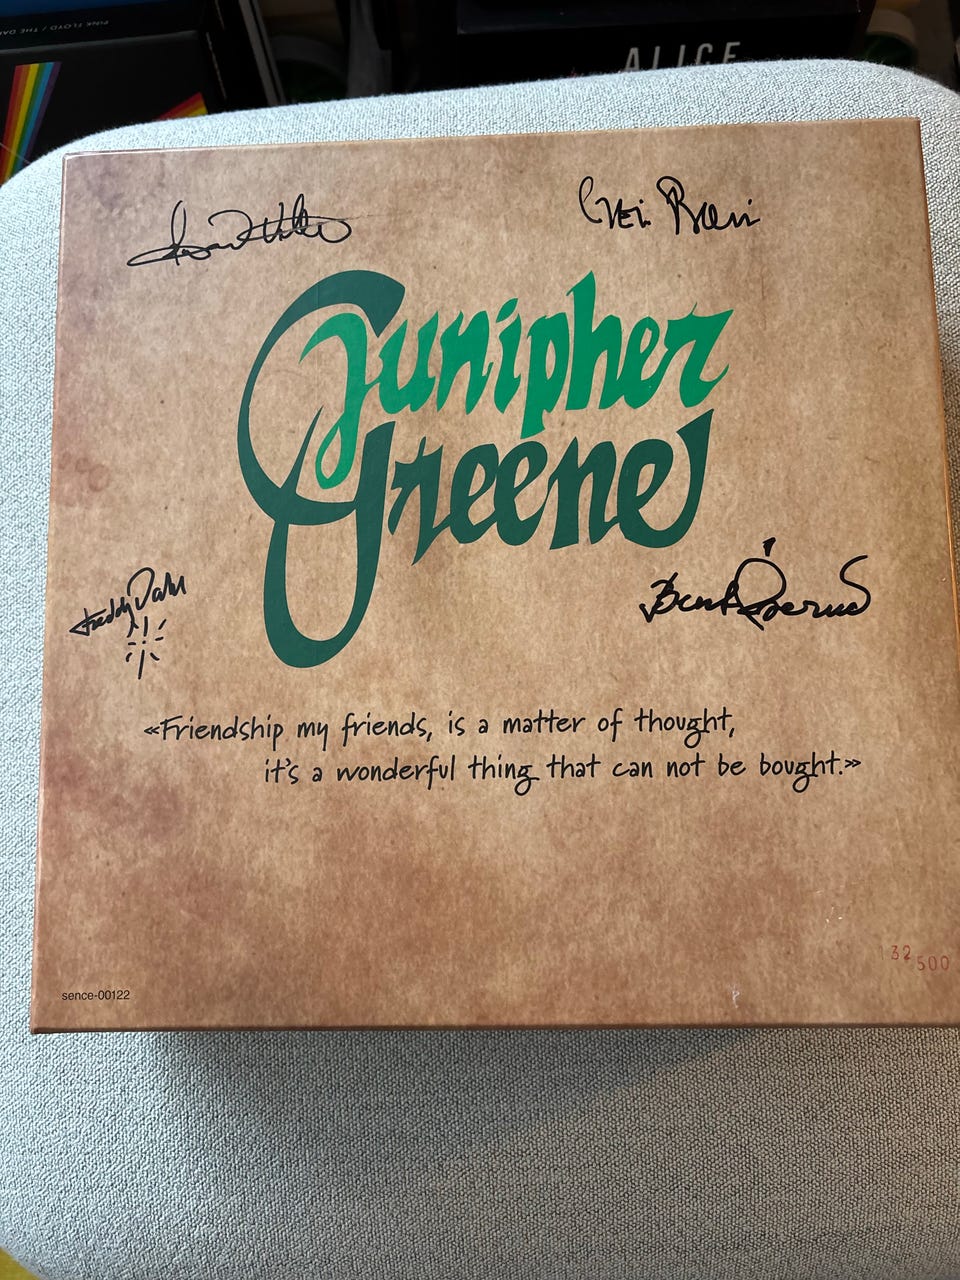 PINK FLOYD / THE DA
ALICE
Junipher
Greene
Freddy Dahl
Bent Åserud
«Friendship my friends, is a matter of thought,
it's a wonderful thing that can not be bought.»
132
500
sence-00122